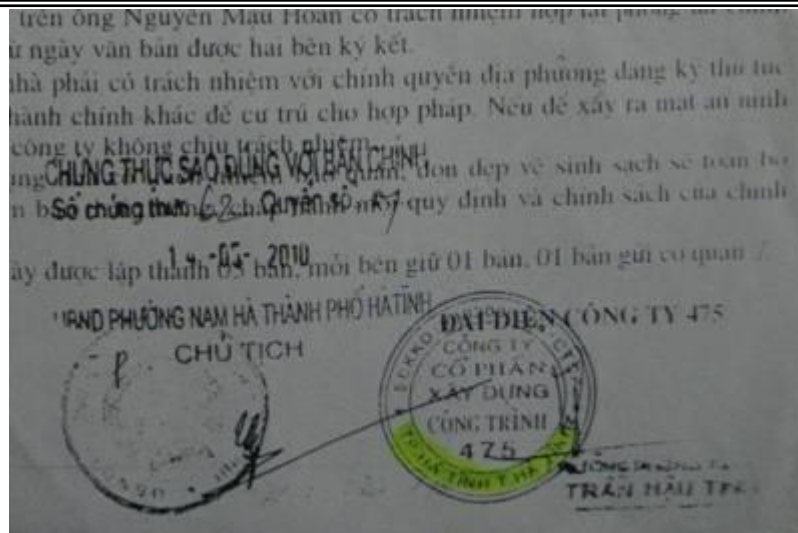 trên ông Nguyễn Mậu Hoàn có trách nhiệm
ừ ngày văn bản được hai bên ký kết.
nhà phải có trách nhiệm với chính quyền địa phương đăng ký thủ tục
hành chính khác để cư trú cho hợp pháp. Nếu để xẩy ra mất an ninh
công ty không chịu trách nhiệm
CHỨNG THỰC SAO ĐÚNG VỚI BẢN CHÍNH
quản, dọn dẹp vệ sinh sạch sẽ toàn bộ
Số chứng thực 62 Quyển số
quy định và chính sách của chính
-05- 2010
ày được lập thành 03 bản, mỗi bên giữ 01 bản, 01 bản gửi cơ quan
UBND PHƯỜNG NAM HÀ THÀNH PHỐ HÀ TĨNH
CHỦ TỊCH
ĐẠI DIỆN CÔNG TY 475
CÔNG TY
CỔ PHẦN
XÂY DỰNG
CÔNG TRÌNH
475
TP. HÀ TĨNH T. HÀ TĨNH
TRẦN HẬU